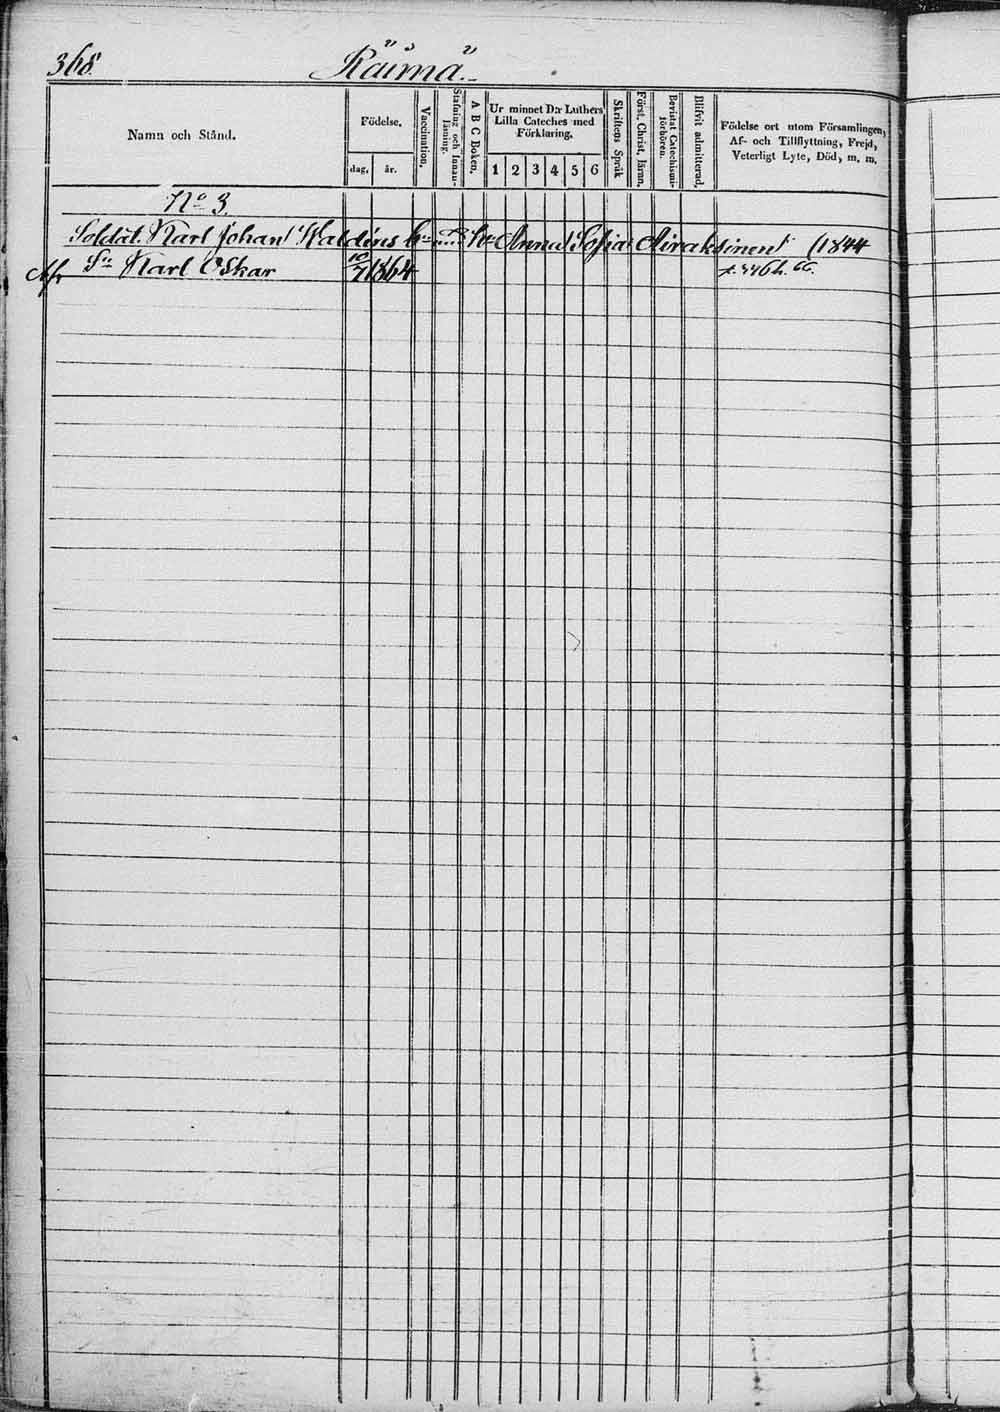 368.
Räimä.
Namn och Stånd.
Födelse.
dag.
år.
Vaccination.
Stafning och Innanläsning.
A B C Boken.
Ur minnet D:r Luthers
Lilla Cateches med
Förklaring.
1 2 3 4 5 6
Skriftens Språk
Först. Christ. läran.
Bevistat Catechismi-förhören.
Blifvit admitterad.
Födelse ort utom Församlingen,
Af- och Tillflyttning, Frejd,
Veterligt Lyte, Död, m. m.
No 3.
Soldat. Karl Johan Waldéns Anna Sofia Airaksinen (1844
Sn Karl Oskar 10/7 1864